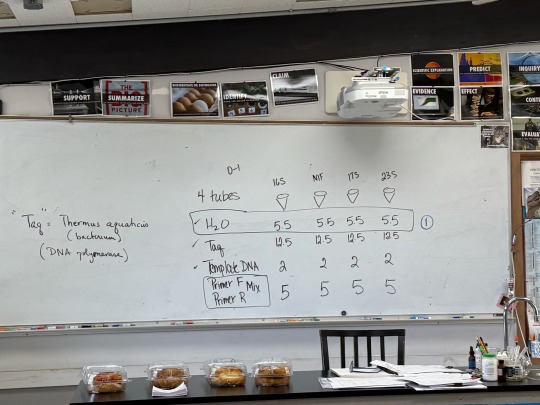 CLAIM
SUPPORT
THE
SUMMARIZE
PICTURE
IDENTIFY
EPSON
SCIENTIFIC EXPLANATION
PREDICT
INQUIRY
EVIDENCE
EFFECT
EVALUA
D-1
16S NIF 17S 23S
4 tubes
✓ H2O 5.5 5.5 5.5 5.5 ①
✓ Taq 12.5 12.5 12.5 12.5
• Template DNA 2 2 2 2
Primer F Mix 5 5 5 5
Primer R
"Taq" = Thermus aquaticus
(bacterium)
(DNA polymerase)